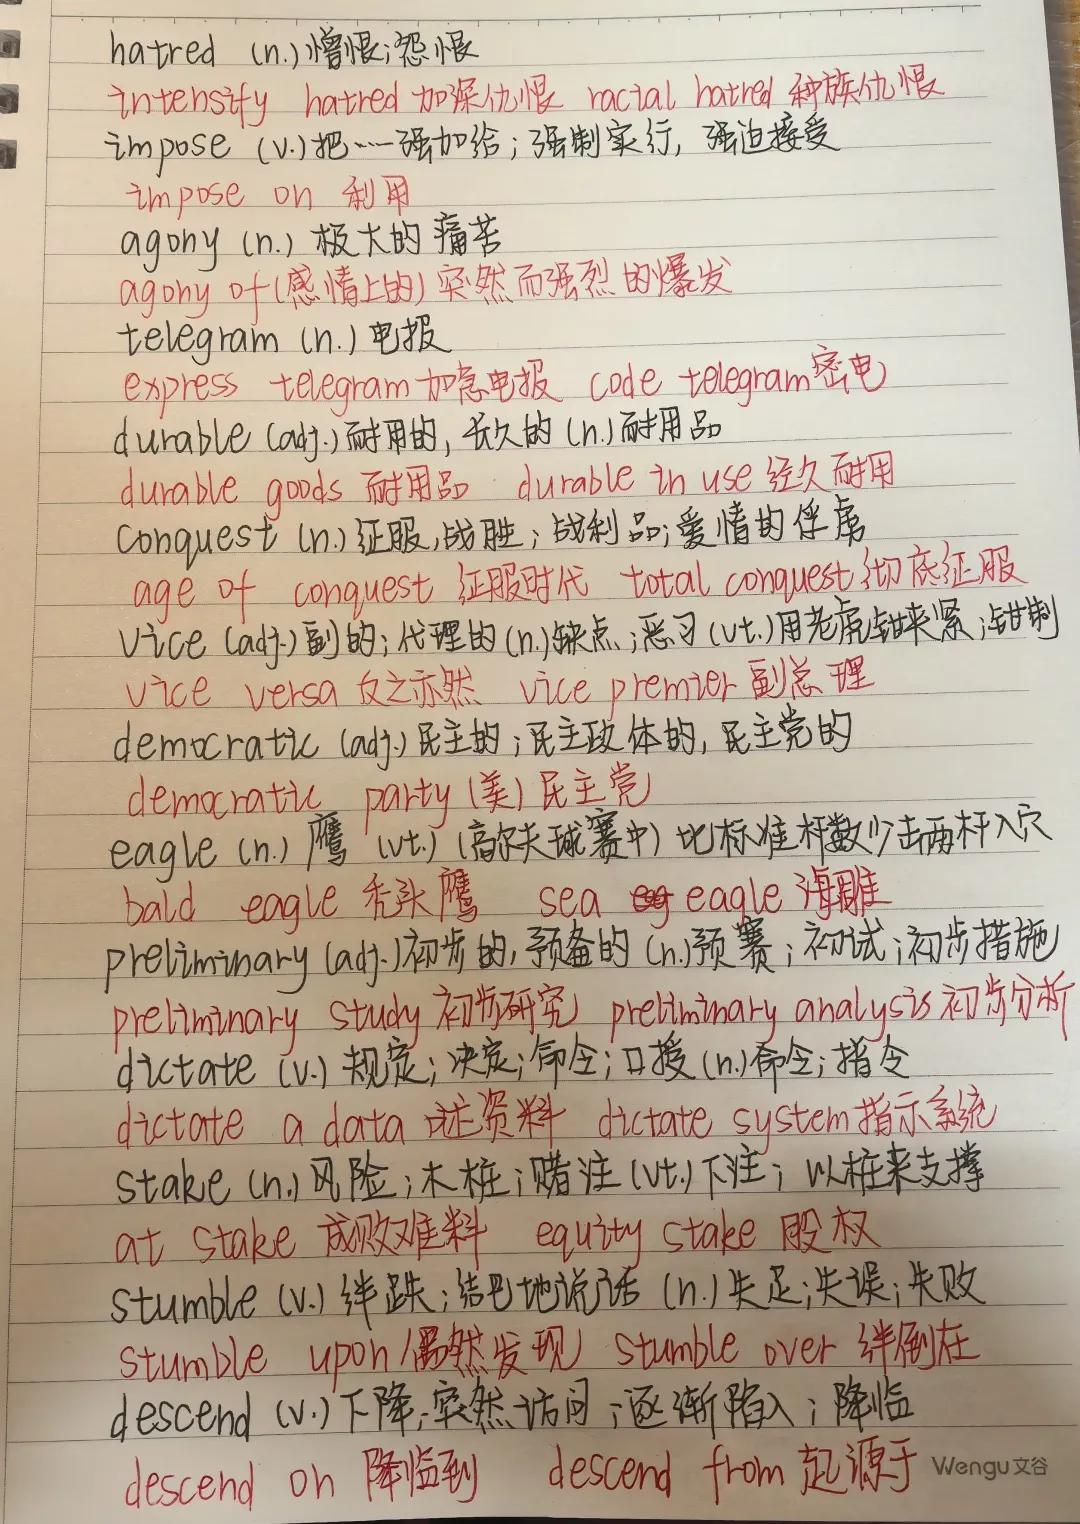 hatred (n.) 憎恨;怨恨
intensify hatred 加深仇恨 racial hatred 种族仇恨
impose (v.) 把……强加给;强制实行,强迫接受
impose on 利用
agony (n.) 极大的痛苦
agony of (感情上的) 突然而强烈的爆发
telegram (n.) 电报
express telegram 加急电报 code telegram 密电
durable (adj.) 耐用的,长久的 (n.) 耐用品
durable goods 耐用品 durable in use 经久耐用
conquest (n.) 征服,战胜;战利品;爱情的俘虏
age of conquest 征服时代 total conquest 彻底征服
vice (adj.) 副的;代理的 (n.) 缺点;恶习 (vt.) 用老虎钳夹紧;钳制
vice versa 反之亦然 vice premier 副总理
democratic (adj.) 民主的;民主政体的,民主党的
democratic party (美) 民主党
eagle (n.) 鹰 (vt.) (高尔夫球赛中) 比标准杆数少击两杆入穴
bald eagle 秃头鹰 sea eagle 海雕
preliminary (adj.) 初步的,预备的 (n.) 预赛;初试;初步措施
preliminary study 初步研究 preliminary analysis 初步分析
dictate (v.) 规定;决定;命令;口授 (n.) 命令;指令
dictate a data 记述资料 dictate system 指示系统
stake (n.) 风险;木桩;赌注 (vt.) 下注;以桩来支撑
at stake 成败难料 equity stake 股权
stumble (v.) 绊跌;结巴地说话 (n.) 失足;失误;失败
stumble upon 偶然发现 stumble over 绊倒在
descend (v.) 下降;突然访问;逐渐陷入;降临
descend on 降临到 descend from 起源于
Wengu 文谷